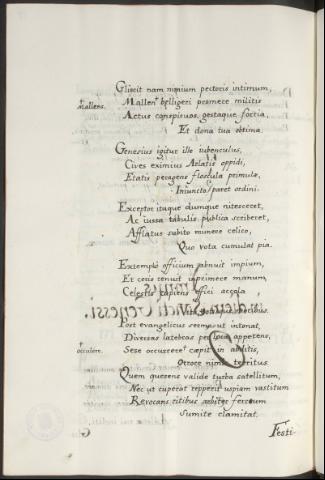 Gliscit nam nimium pectoris intimum,
mallens. Mallens belligeri promere militis
Actus conspicuos, gestaque fortia,
Et dona tua obtima.
Genesius igitur ille iubenculus,
Cives eximius Arlatis oppidi,
Etatis peragens floscula primulæ,
Iniuncto paret ordini.
Exceptor itaque dumque nitesceret,
Ac iussa tabulis publica scriberet,
Afflatus subito munere celico,
Quo vota cumulat pia.
Extemplo officium rabnuit impium,
Et ceris renuit inprimere manum,
Celestis cupiens effici accola
Post evangelicus sermo ut intonat,
Diversas latebras per loca appetens,
occulere. Sese occurrere cœpit in abditis,
Atroce nimis territus.
Quem querens valide turba satellitum,
Nec ut cuperat repperit uspiam vastitum
Revocans titibus arbiter fercrum
Sumite clamitat.
Festi-